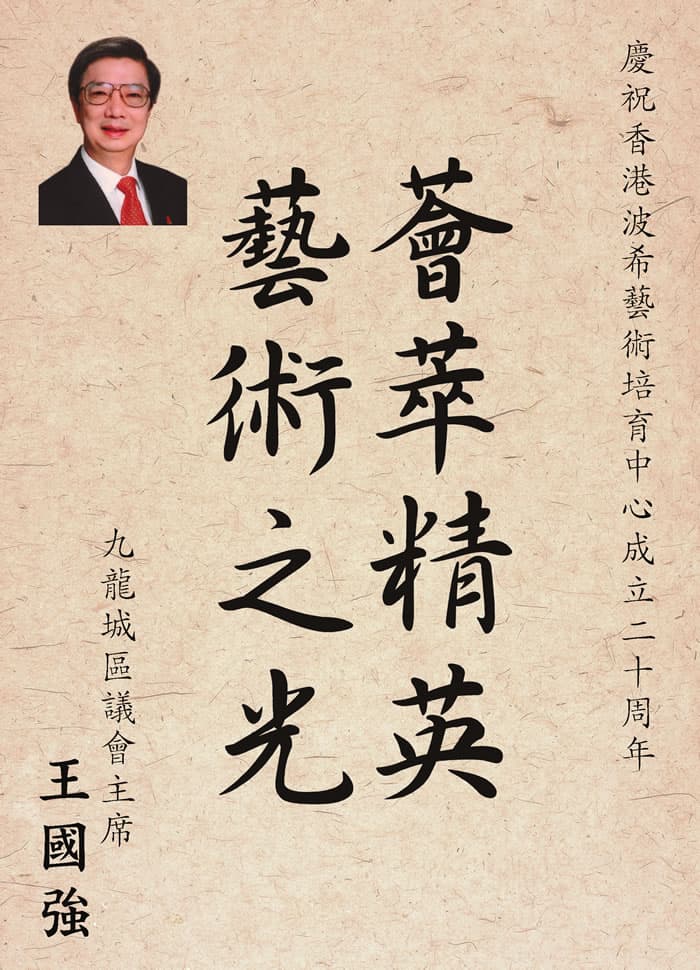 慶祝香港波希藝術培育中心成立二十周年
薈萃精英
藝術之光
九龍城區議會主席
王國強